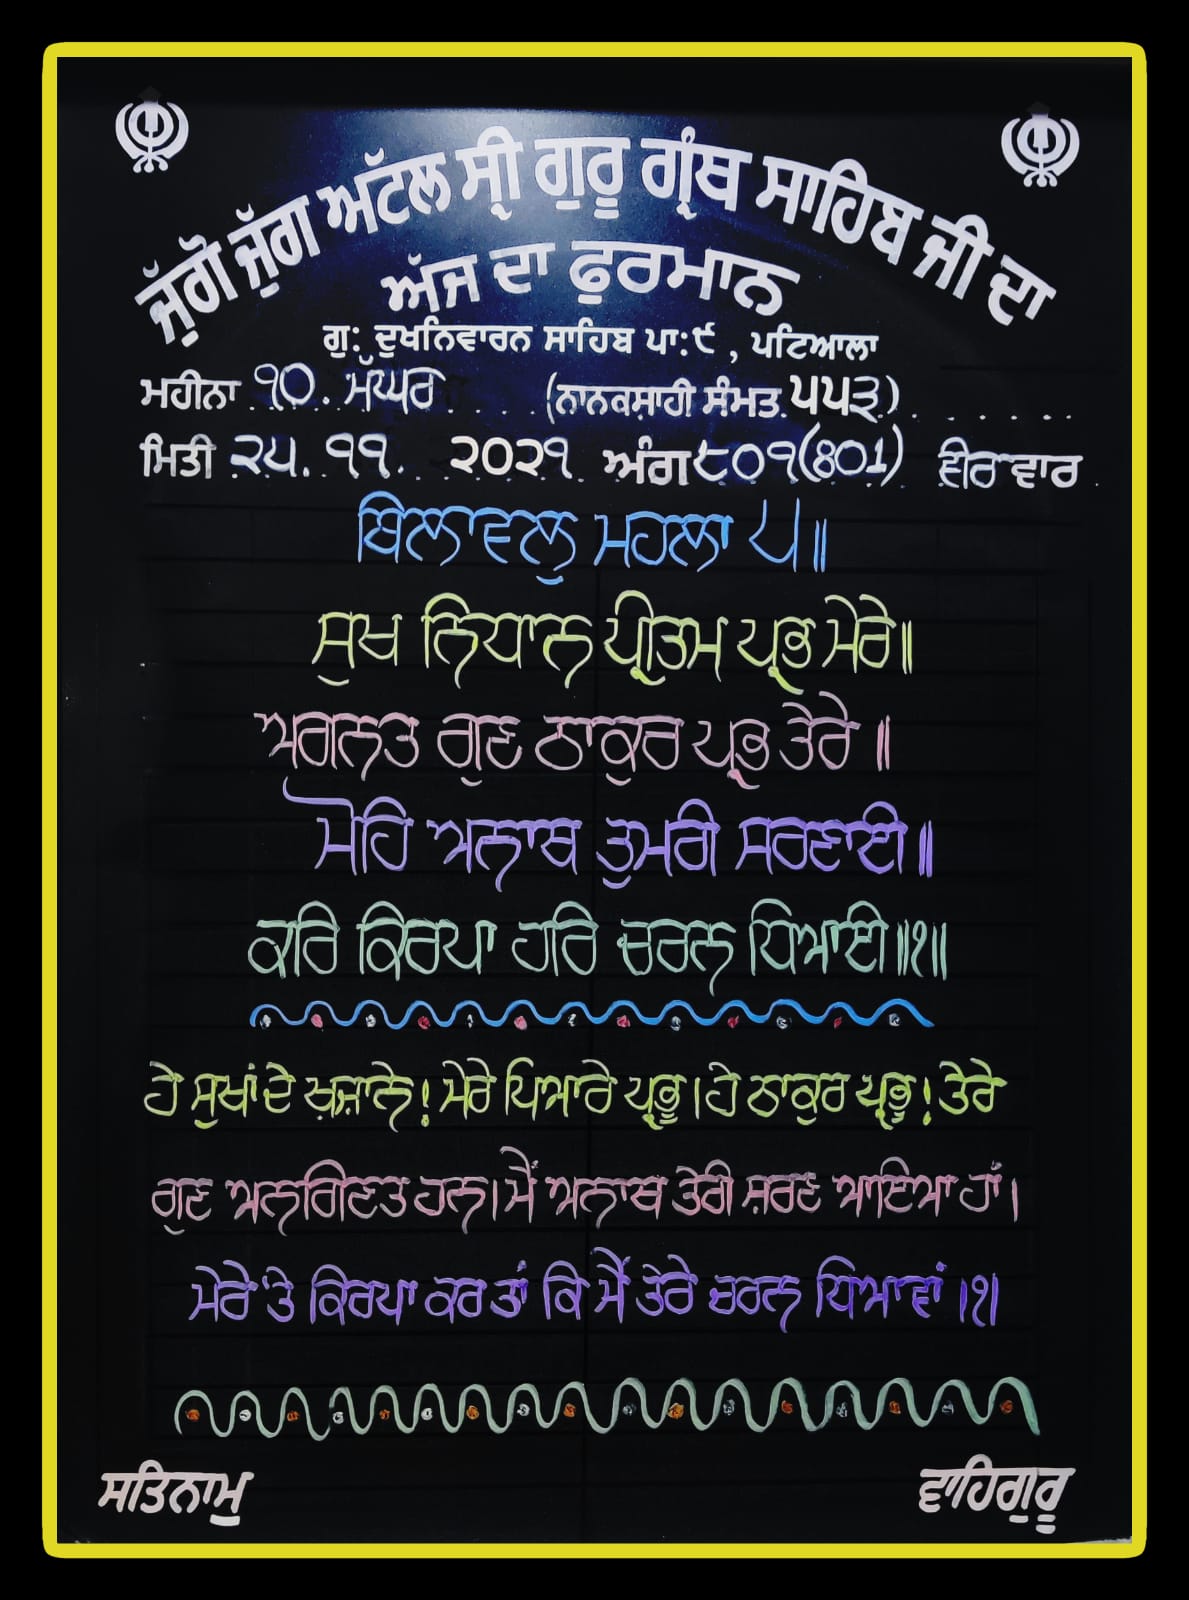 ਜੁੱਗੋ ਜੁੱਗ ਅਟੱਲ ਸ੍ਰੀ ਗੁਰੂ ਗ੍ਰੰਥ ਸਾਹਿਬ ਜੀ ਦਾ
ਅੱਜ ਦਾ ਫੁਰਮਾਨ
ਗੁ: ਦੁਖਨਿਵਾਰਨ ਸਾਹਿਬ ਪਾ:੯ , ਪਟਿਆਲਾ
ਮਹੀਨਾ ੧੦. ਮੱਘਰ (ਨਾਨਕਸ਼ਾਹੀ ਸੰਮਤ ੫੫੩)
ਮਿਤੀ ੨੫. ੧੧. ੨੦੨੧ ਅੰਗ ੮੦੧(801) ਵੀਰਵਾਰ
ਬਿਲਾਵਲੁ ਮਹਲਾ ੫॥
ਸੁਖ ਨਿਧਾਨ ਪ੍ਰੀਤਮ ਪ੍ਰਭ ਮੇਰੇ॥
ਅਗਨਤ ਗੁਣ ਠਾਕੁਰ ਪ੍ਰਭ ਤੇਰੇ ॥
ਮੋਹਿ ਅਨਾਥ ਤੁਮਰੀ ਸਰਣਾਈ॥
ਕਰਿ ਕਿਰਪਾ ਹਰਿ ਚਰਨ ਧਿਆਈ॥੧॥
ਹੇ ਸੁਖਾਂ ਦੇ ਖ਼ਜ਼ਾਨੇ! ਮੇਰੇ ਪਿਆਰੇ ਪ੍ਰਭੂ। ਹੇ ਠਾਕੁਰ ਪ੍ਰਭੂ! ਤੇਰੇ
ਗੁਣ ਅਨਗਿਣਤ ਹਨ। ਮੈਂ ਅਨਾਥ ਤੇਰੀ ਸ਼ਰਣ ਆਇਆ ਹਾਂ।
ਮੇਰੇ 'ਤੇ ਕਿਰਪਾ ਕਰ ਤਾਂ ਕਿ ਮੈਂ ਤੇਰੇ ਚਰਨ ਧਿਆਵਾਂ ।੧।
ਸਤਿਨਾਮੁ ਵਾਹਿਗੁਰੂ